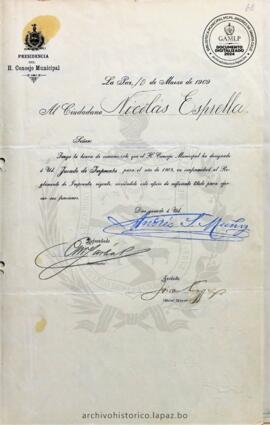 60
PRESIDENCIA
DEL
H. Concejo Municipal
GAMLP
DOCUMENTO
DIGITALIZADO
2024
La Paz, 10 de Marzo de 1909
Al Ciudadano Nicolás Esprella.
Señor:
Tengo la honra de comunicarle que el H. Concejo Municipal ha designado
á Ud. Jurado de Imprenta para el año de 1909, en conformidad al Re-
glamento de Imprenta vigente, sirviéndole este oficio de suficiente título para ejer-
cer sus funciones.
Dios guarde á Ud.
Andrés S. Muñoz
archivohistorico.lapaz.bo